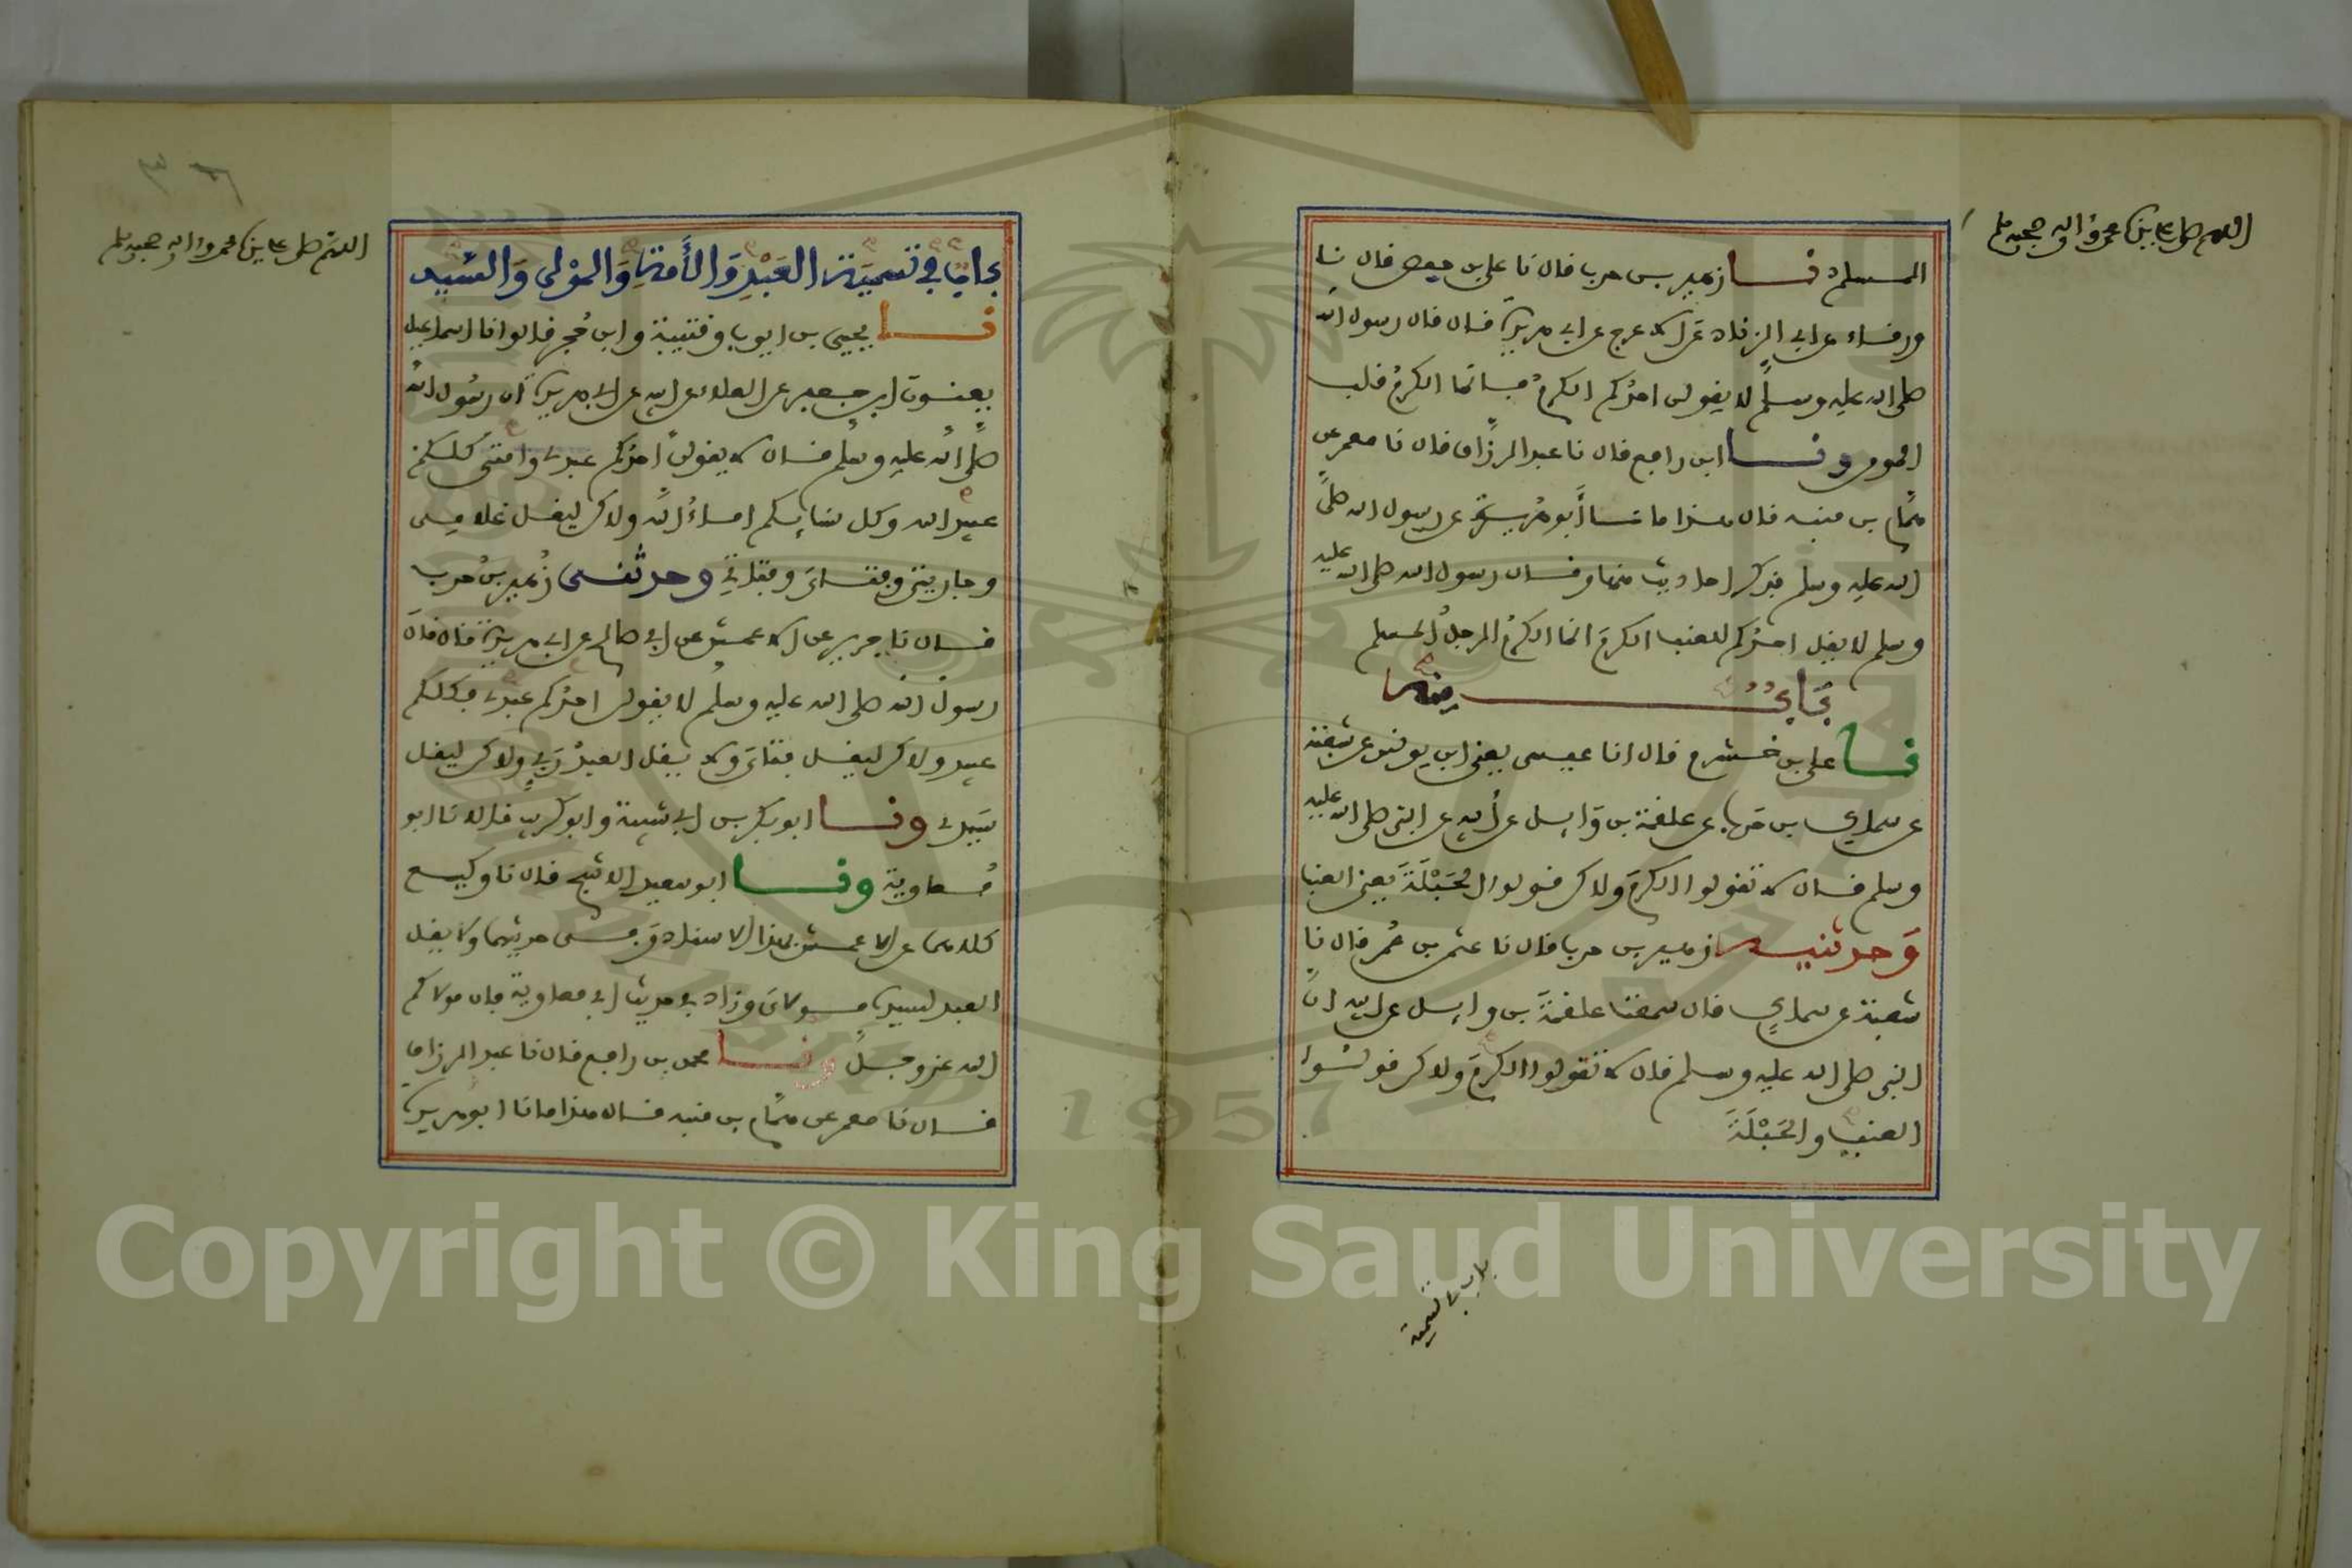 اللهم صل على سيدنا محمد واله وصحبه وسلم
المسلم نا زهير بن حرب قال نا علي بن حفص قال نا
ورقاء عن ابي الزناد عن الاعرج عن ابي هريرة قال قال رسول الله
صلى الله عليه وسلم لا يقولن احدكم الكرم فانما الكرم قلب
المومن ونا ابن رافع قال نا عبد الرزاق قال نا معمر عن
همام بن منبه قال هذا ما نا أبو هريرة عن رسول الله صلى
الله عليه وسلم فذكر احاديث منها وقال رسول الله صلى الله عليه
وسلم لا يقل احدكم للعنب الكرم انما الكرم الرجل المسلم
باب منه
نا علي بن خشرم قال انا عيسى يعني ابن يونس عن شعبة
عن سماك بن حرب عن علقمة بن وايل عن أبيه عن النبي صلى الله عليه
وسلم قال لا تقولوا الكرم ولاكن قولوا الحَبْلَة يعني العنب
وحدثنيه زهير بن حرب قال نا عثمن بن عُمر قال نا
شعبة عن سماك قال سمعت علقمة بن وايل عن ابيه ان
النبي صلى الله عليه وسلم قال لا تقولوا الكرم ولاكن قولوا
العنب والحَبْلَة
باب في تسمية
اللهم صل على سيدنا محمد واله وصحبه وسلم
باب في تسمية العَبْدِ وَالأَمَةِ وَالمَوْلى وَالسيد
نا يحيى بن ايوب وقتيبة وابن حُجر قالوا نا اسماعيل
يعنون ابن جعفر عن العلاء عن ابيه عن ابي هريرة ان رسُول الله
صلى الله عليه وسلم قال لا يقولن احدكم عبدي وامتي كلكم
عبيد الله وكل نسايكم اماءُ الله ولاكن ليقل غلامي
وجاريتي وفتاي وفتاتي وحدثني زُهير بن حرب
قال نا جرير عن الاعمش عن ابي صالح عن ابي هريرة قال قال
رسول الله صلى الله عليه وسلم لا يقولن احدكم عبدي فكلكم
عبيد ولاكن ليقل فتاي ولا يقل العبدُ رَبي ولاكن ليقل
سيدي ونا ابو بكر بن ابي شيبة وابو كريب قالا نا ابو
مُعاوية ونا ابو سعيد الاشج قال نا وكيع
كلاهما عن الاعمش بهذا الاسناد وفي حديثهما ولا يقل
العبد لسيده مولاي وزاد في حديث ابي معاوية فان مولاكم
الله عز وجل ونا محمد بن رافع قال نا عبد الرزاق
قال نا معمر عن همام بن منبه قال هذا ما نا ابو هريرة
Copyright © King Saud University
1957